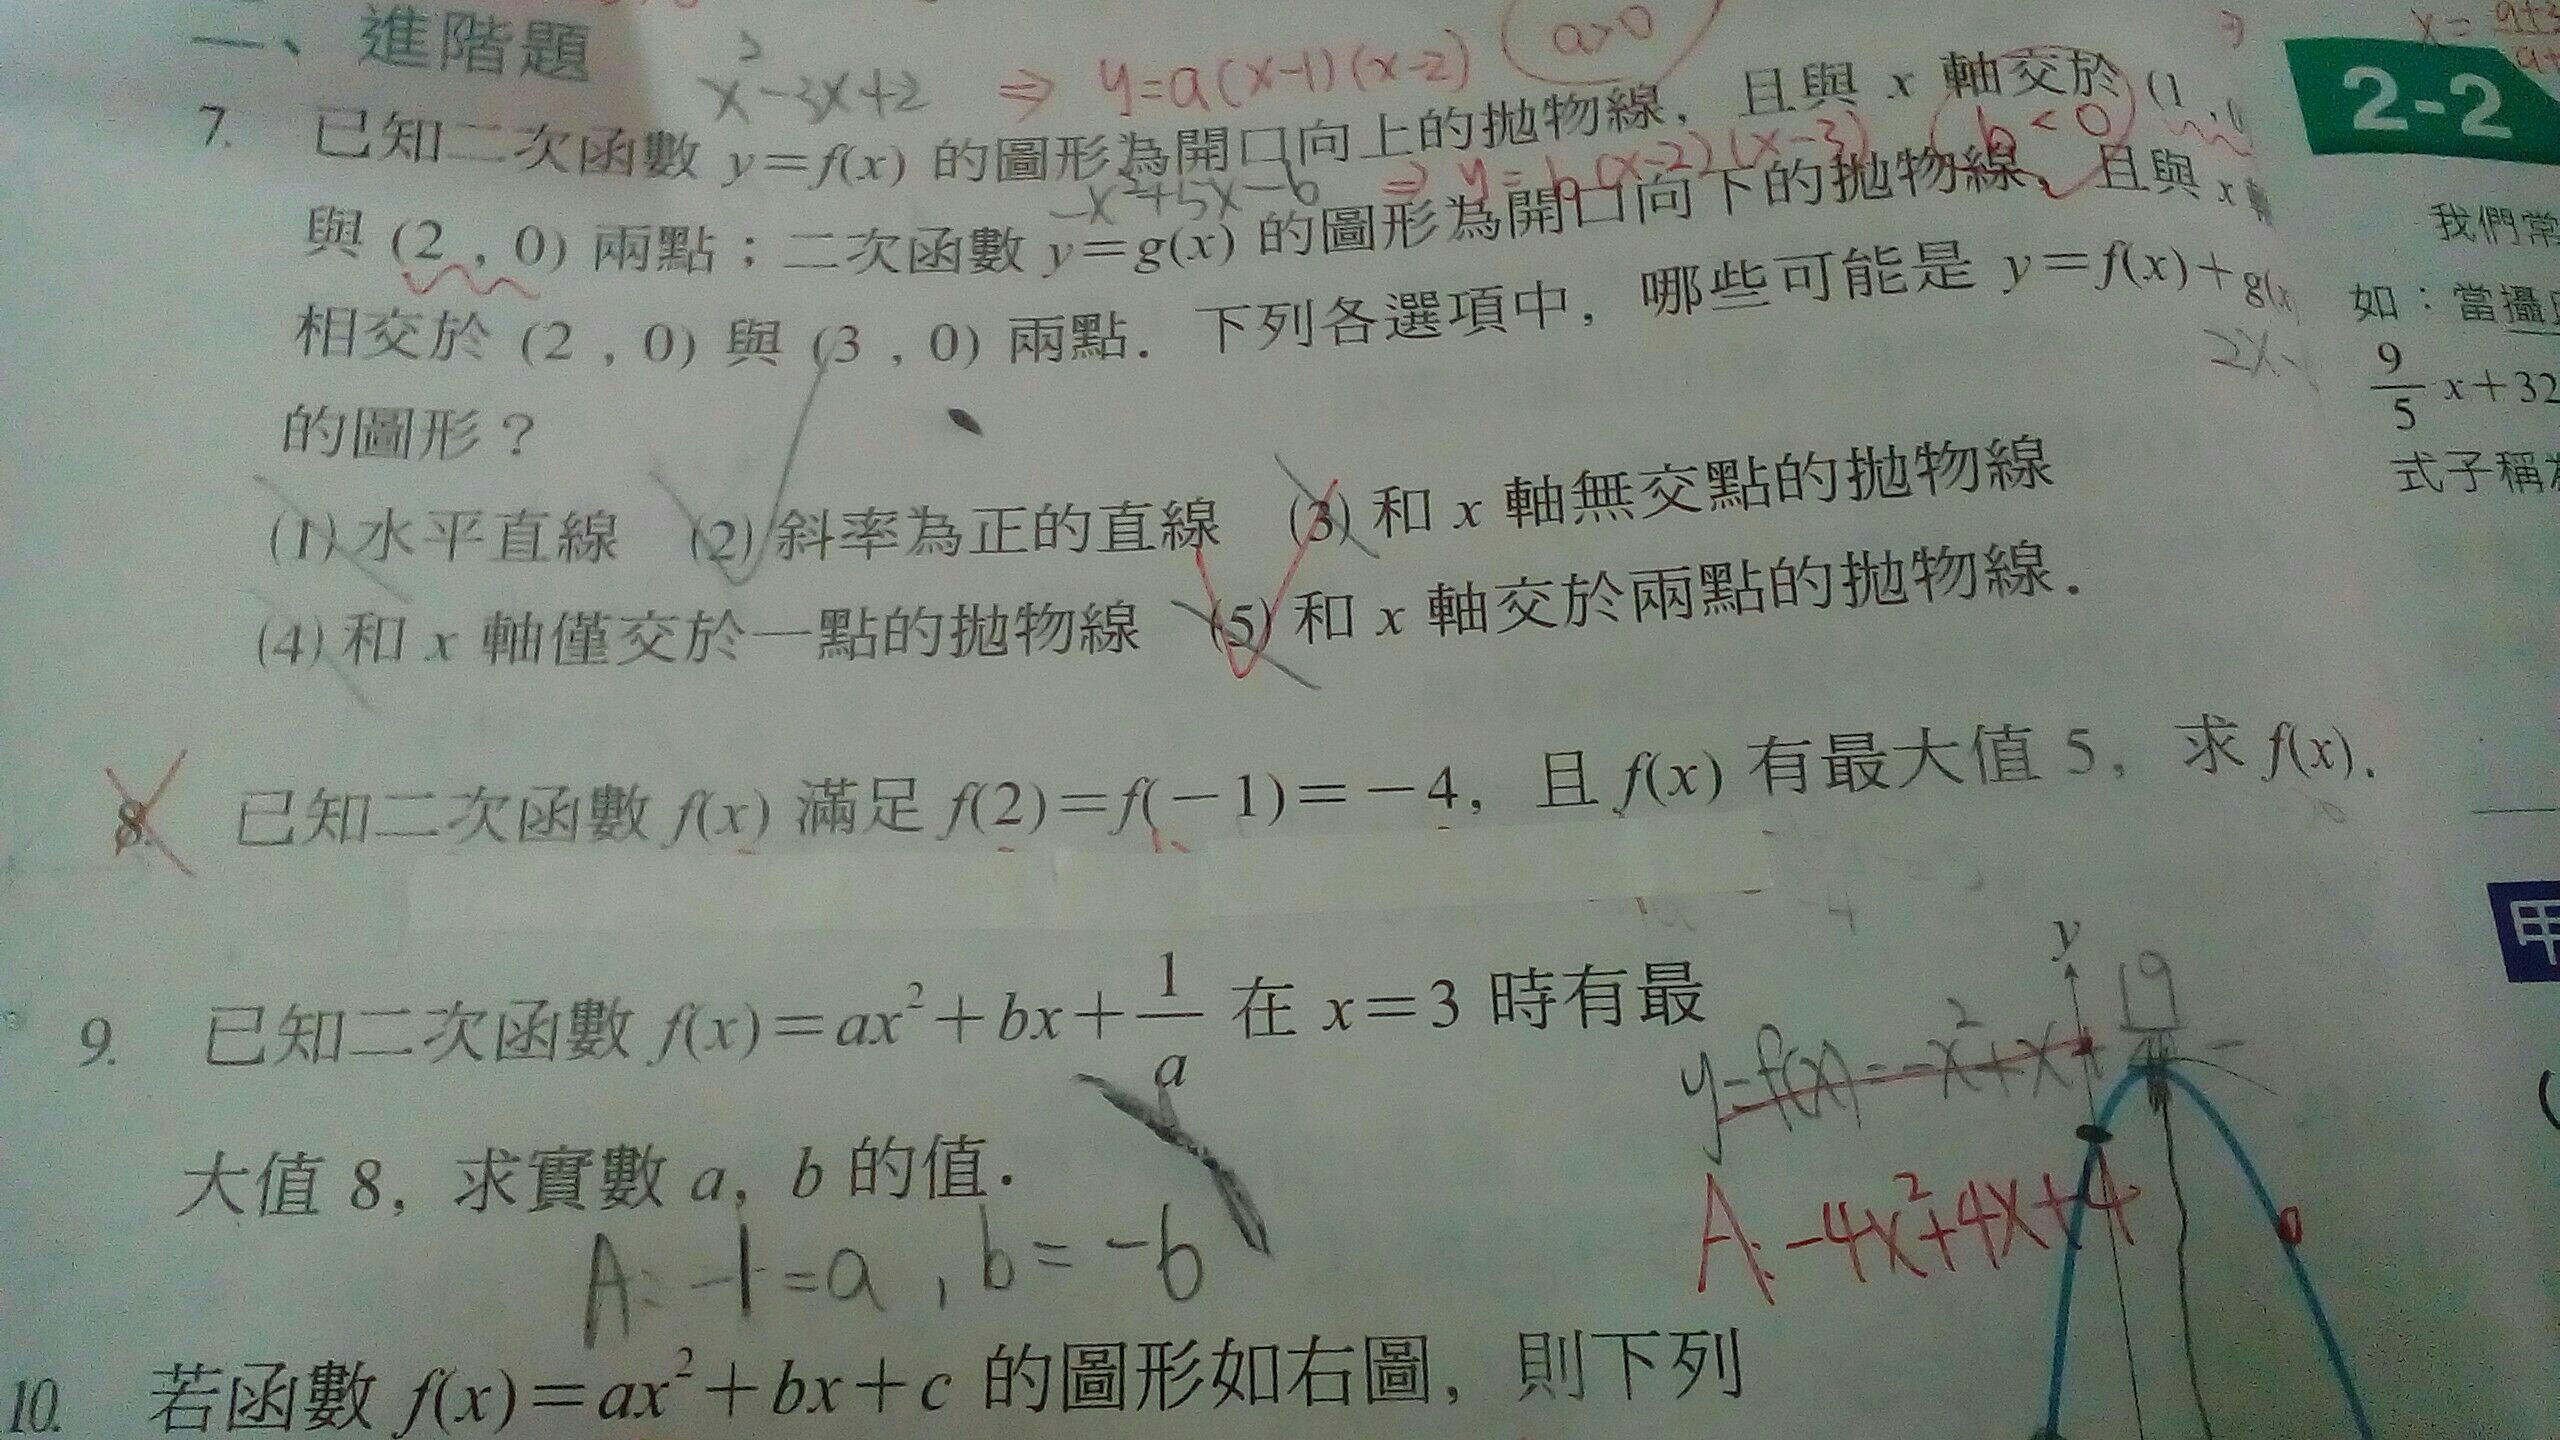 二、進階題
x²-3x+2 ⇒ y=a(x-1)(x-2) a>0
7. 已知二次函數 y=f(x) 的圖形為開口向上的拋物線，且與 x 軸交於 (1 ,
-x²+5x-6 ⇒ y=b(x-2)(x-3) b<0
與 (2 , 0) 兩點；二次函數 y=g(x) 的圖形為開口向下的拋物線，且與 x
相交於 (2 , 0) 與 (3 , 0) 兩點．下列各選項中，哪些可能是 y=f(x)+g(x
的圖形？
(1) 水平直線 (2) 斜率為正的直線 (3) 和 x 軸無交點的拋物線
(4) 和 x 軸僅交於一點的拋物線 (5) 和 x 軸交於兩點的拋物線．
8. 已知二次函數 f(x) 滿足 f(2)=f(-1)=-4，且 f(x) 有最大值 5，求 f(x)．
9. 已知二次函數 f(x)=ax²+bx+1/a 在 x=3 時有最
大值 8，求實數 a，b 的值．
A: -1=a , b=-6
10. 若函數 f(x)=ax²+bx+c 的圖形如右圖，則下列
y
y=f(x)=-x²+x+19/4
A: -4x²+4x+4
2-2
我們常
如：當攝
9/5 x+32
式子稱
甲